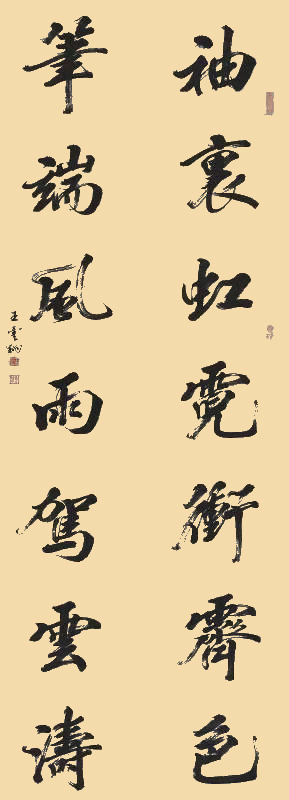 袖裏虹霓衝霽色
筆端風雨駕雲濤
王